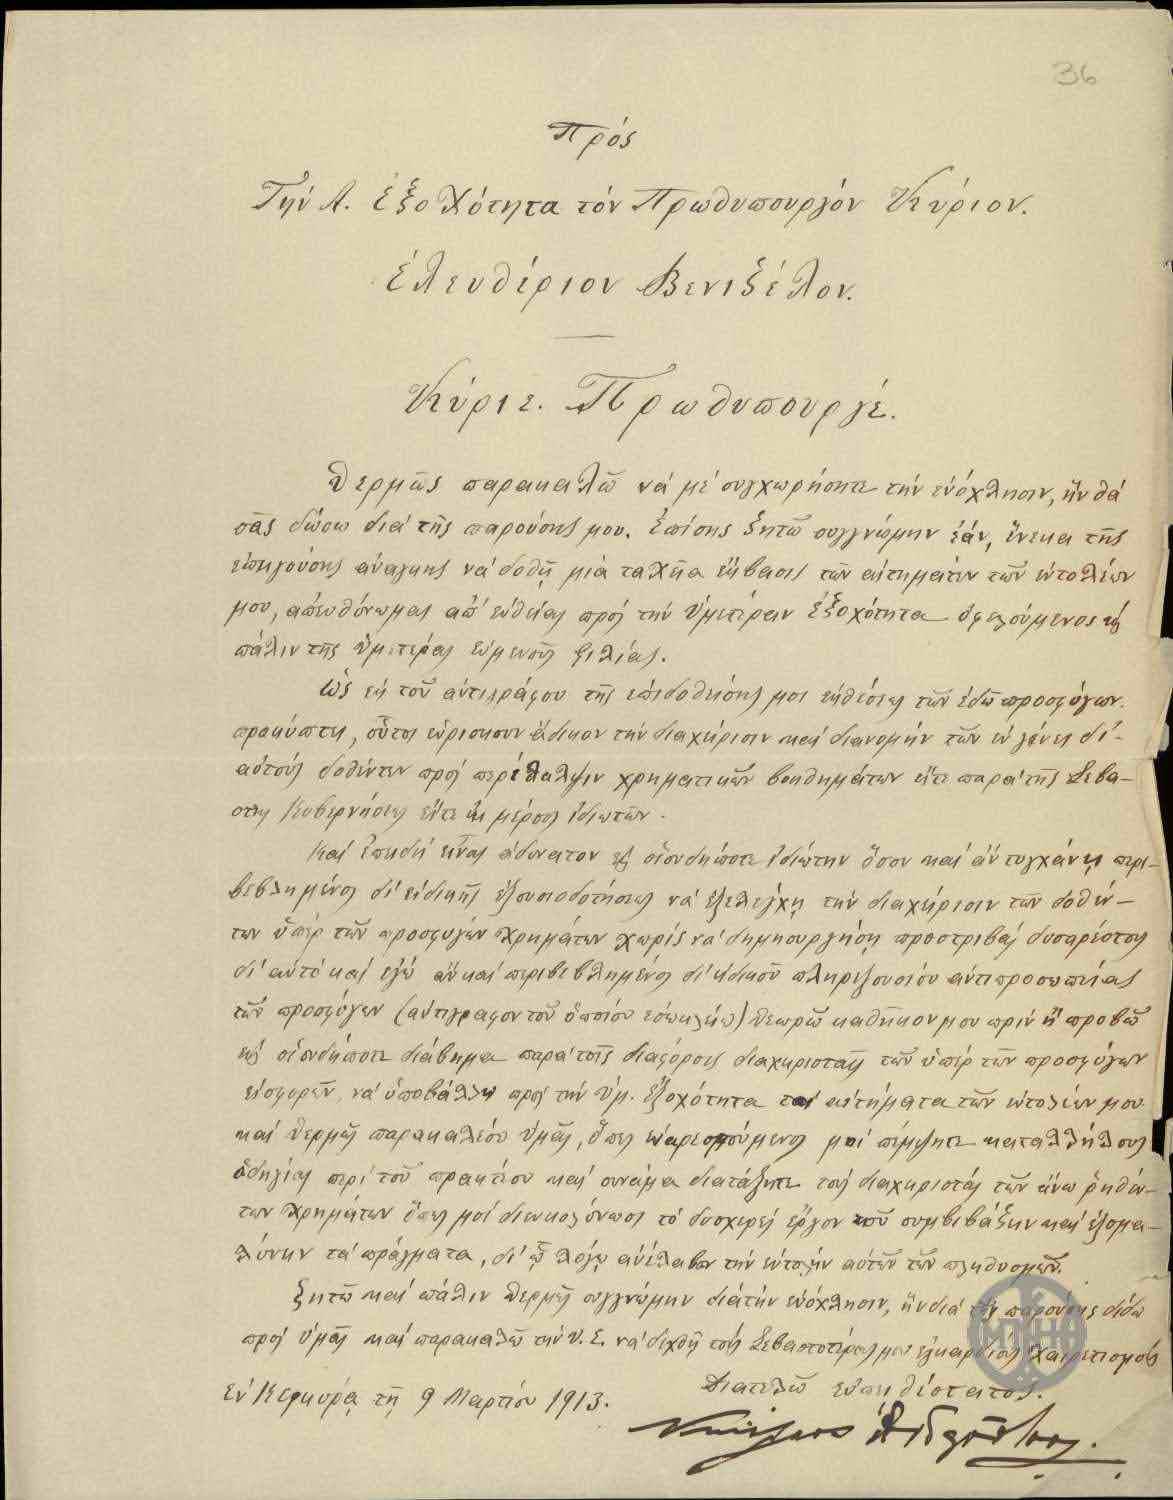 36
Πρός
Τήν Α. Ἐξοχότητα τόν Πρωθυπουργόν Κύριον.
Ἐλευθέριον Βενιζέλον.
Κύριε. Πρωθυπουργέ.
Θερμῶς παρακαλῶ νά μέ συγχωρήσητε τήν ἐνόχλησιν, ἥν θά
σᾶς δώσω διά τῆς παρούσης μου. Ἐπίσης ζητῶ συγγνώμην ἐάν, ἕνεκα τῆς
ἐπειγούσης ἀνάγκης νά δοθῇ μιά ταχεῖα ἔκβασις τῶν αἰτημάτων τῶν ἐντολέων
μου, ἀπευθύνωμαι ἀπ' εὐθείας πρός τήν Ὑμετέραν Ἐξοχότητα ὀφελούμενος
πάλιν τῆς ὑμετέρας εὐμενοῦς φιλίας.
Ὡς ἐκ τοῦ ἀντιγράφου τῆς ἐπιδοθείσης μοι ἐκθέσεως τῶν ἐδῶ προσφύγων
προκύπτει, οὗτοι εὑρίσκουν ἄδικον τήν διαχείρισιν καί διανομήν τῶν ἐν γένει δι'
αὐτούς δοθέντων πρός περίθαλψιν χρηματικῶν βοηθημάτων εἴτε παρά τῆς Σεβα-
στῆς Κυβερνήσεως εἴτε ἐκ μέρους ἰδιωτῶν.
Καί ἐπειδή εἶναι ἀδύνατον εἰς οἱονδήποτε ἰδιώτην ὅσον καί ἄν τυγχάνῃ περι-
βεβλημένος δι' εἰδικῆς ἐξουσιοδοτήσεως νά ἐξελέγχῃ τήν διαχείρισιν τῶν δοθέν-
των ὑπέρ τῶν προσφύγων χρημάτων χωρίς νά δημιουργήσῃ προστριβάς δυσαρέστους
δι' αὐτό καί ἐγώ ἄν καί περιβεβλημένος δι' εἰδικοῦ πληρεξουσίου ἀντιπροσωπείας
τῶν προσφύγων (ἀντίγραφον τοῦ ὁποίου ἐσωκλείω) θεωρῶ καθῆκον μου πρίν ἤ προβῶ
εἰς οἱονδήποτε διάβημα παρά τοῖς διαφόροις διαχειρισταῖς τῶν ὑπέρ τῶν προσφύγων
εἰσφορῶν, νά ὑποβάλλω πρός τήν Ὑμ. Ἐξοχότητα τά αἰτήματα τῶν ἐντολέων μου
καί θερμῶς παρακαλέσω ὑμᾶς, ὅπως εὐαρεστούμενος μοί πέμψητε καταλλήλους
ὁδηγίας περί τοῦ πρακτέου καί συνάμα διατάξητε τούς διαχειριστάς τῶν ἄνω ῥηθέν-
των χρημάτων ὅπως μοί διευκολύνωσι τό δυσχερές ἔργον τοῦ συμβιβάζειν καί ἐξομα-
λύνειν τά πράγματα, δι' ᾧ λόγῳ ἀνέλαβον τήν ἐντολήν αὐτῶν τῶν πληθυσμῶν.
Ζητῶ καί πάλιν θερμῶς συγγνώμην διά τήν ἐνόχλησιν, ἥν διά τῆς παρούσης δίδω
πρός ὑμᾶς καί παρακαλῶ τήν Υ. Ε. νά δεχθῇ τούς Σεβαστοτέρους μου ἐγκαρδίους χαιρετισμούς
Διατελῶ εὐπειθέστατος.
Ἐν Κερκύρᾳ τῇ 9 Μαρτίου 1913.